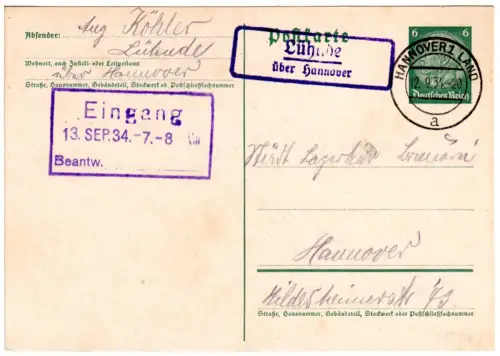 Absender: Aug Köhler
Lühnde
Wohnort, auch Zustell- oder Leitpostamt
über Hannover
Straße, Hausnummer, Gebäudeteil, Stockwerk od. Postschließfachnummer
Postkarte
Lühnde
über Hannover
HANNOVER 1 LAND
9.34.-20
a
6 6
Deutsches Reich
Eingang
13. SEP. 34.-7.-8
Beantw.
Städt
Hannover
Hildesheimerstr 73.
Straße, Hausnummer, Gebäudeteil, Stockwerk oder Postschließfachnummer